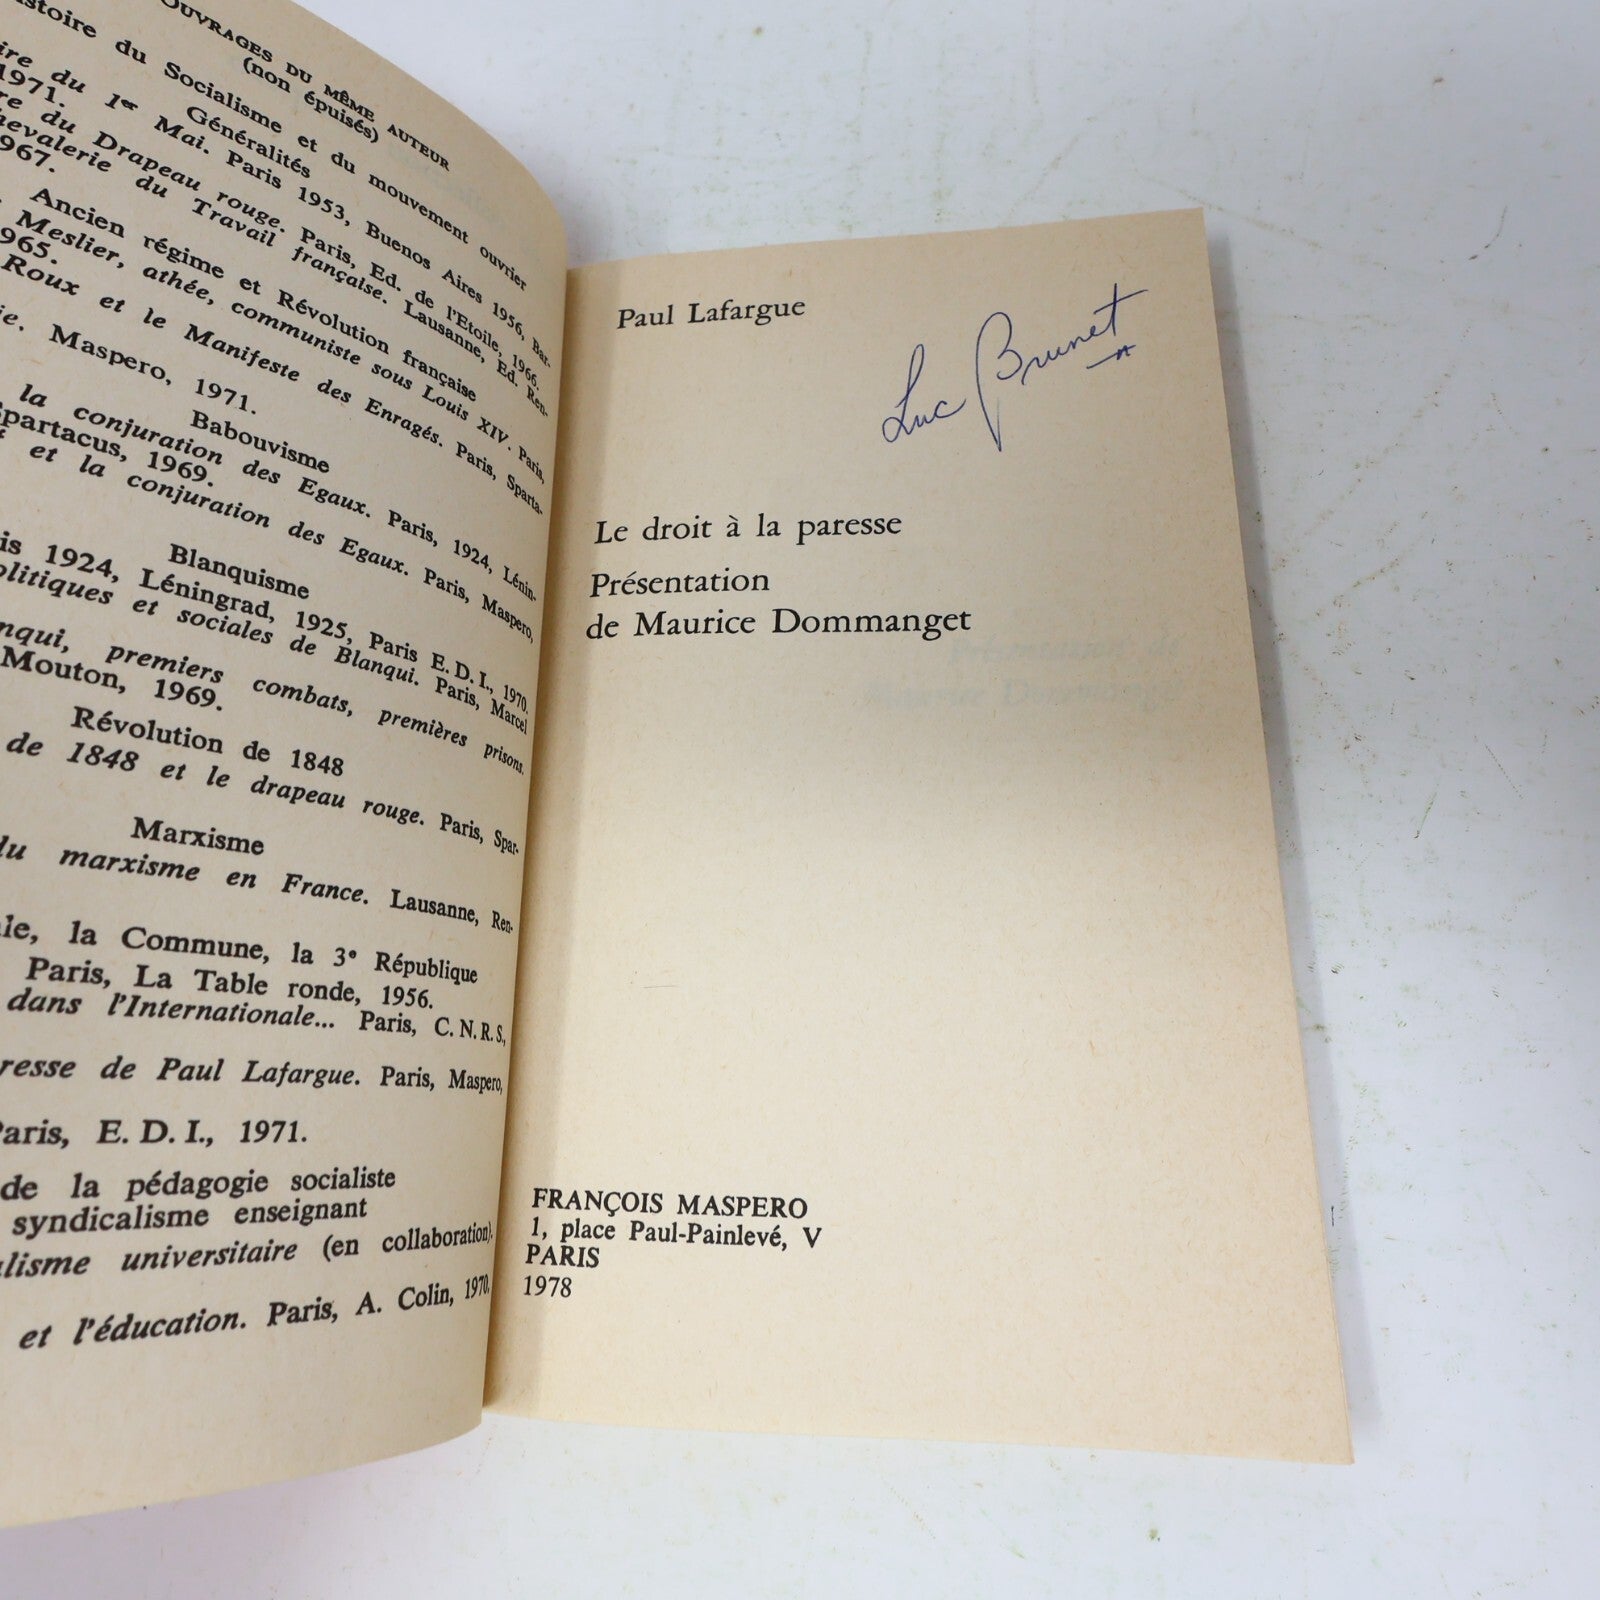 OUVRAGES DU MÊME AUTEUR
(non épuisés)
du Socialisme et du mouvement ouvrier
Généralités
du 1er Mai. Paris 1953, Buenos Aires 1956, Bar-
1971.
du Drapeau rouge. Paris, Ed. de l'Etoile, 1966.
du Travail française. Lausanne, Ed. Ren-
1967.
Ancien régime et Révolution française
Meslier, athée, communiste sous Louis XIV. Paris,
1965.
Roux et le Manifeste des Enragés. Paris, Sparta-
Maspero, 1971.
Babouvisme
la conjuration des Egaux. Paris, 1924, Lénin-
Spartacus, 1969.
et la conjuration des Egaux. Paris, Maspero,
Blanquisme
1924, Léningrad, 1925, Paris E. D. I., 1970.
politiques et sociales de Blanqui. Paris, Marcel
premiers combats, premières prisons.
Mouton, 1969.
Révolution de 1848
de 1848 et le drapeau rouge. Paris, Spar-
Marxisme
du marxisme en France. Lausanne, Ren-
la Commune, la 3e République
Paris, La Table ronde, 1956.
dans l'Internationale... Paris, C. N. R. S.,
de Paul Lafargue. Paris, Maspero,
Paris, E. D. I., 1971.
de la pédagogie socialiste
syndicalisme enseignant
universitaire (en collaboration).
et l'éducation. Paris, A. Colin, 1970.
Paul Lafargue
Luc Brunet
Le droit à la paresse
Présentation
de Maurice Dommanget
FRANÇOIS MASPERO
1, place Paul-Painlevé, V
PARIS
1978